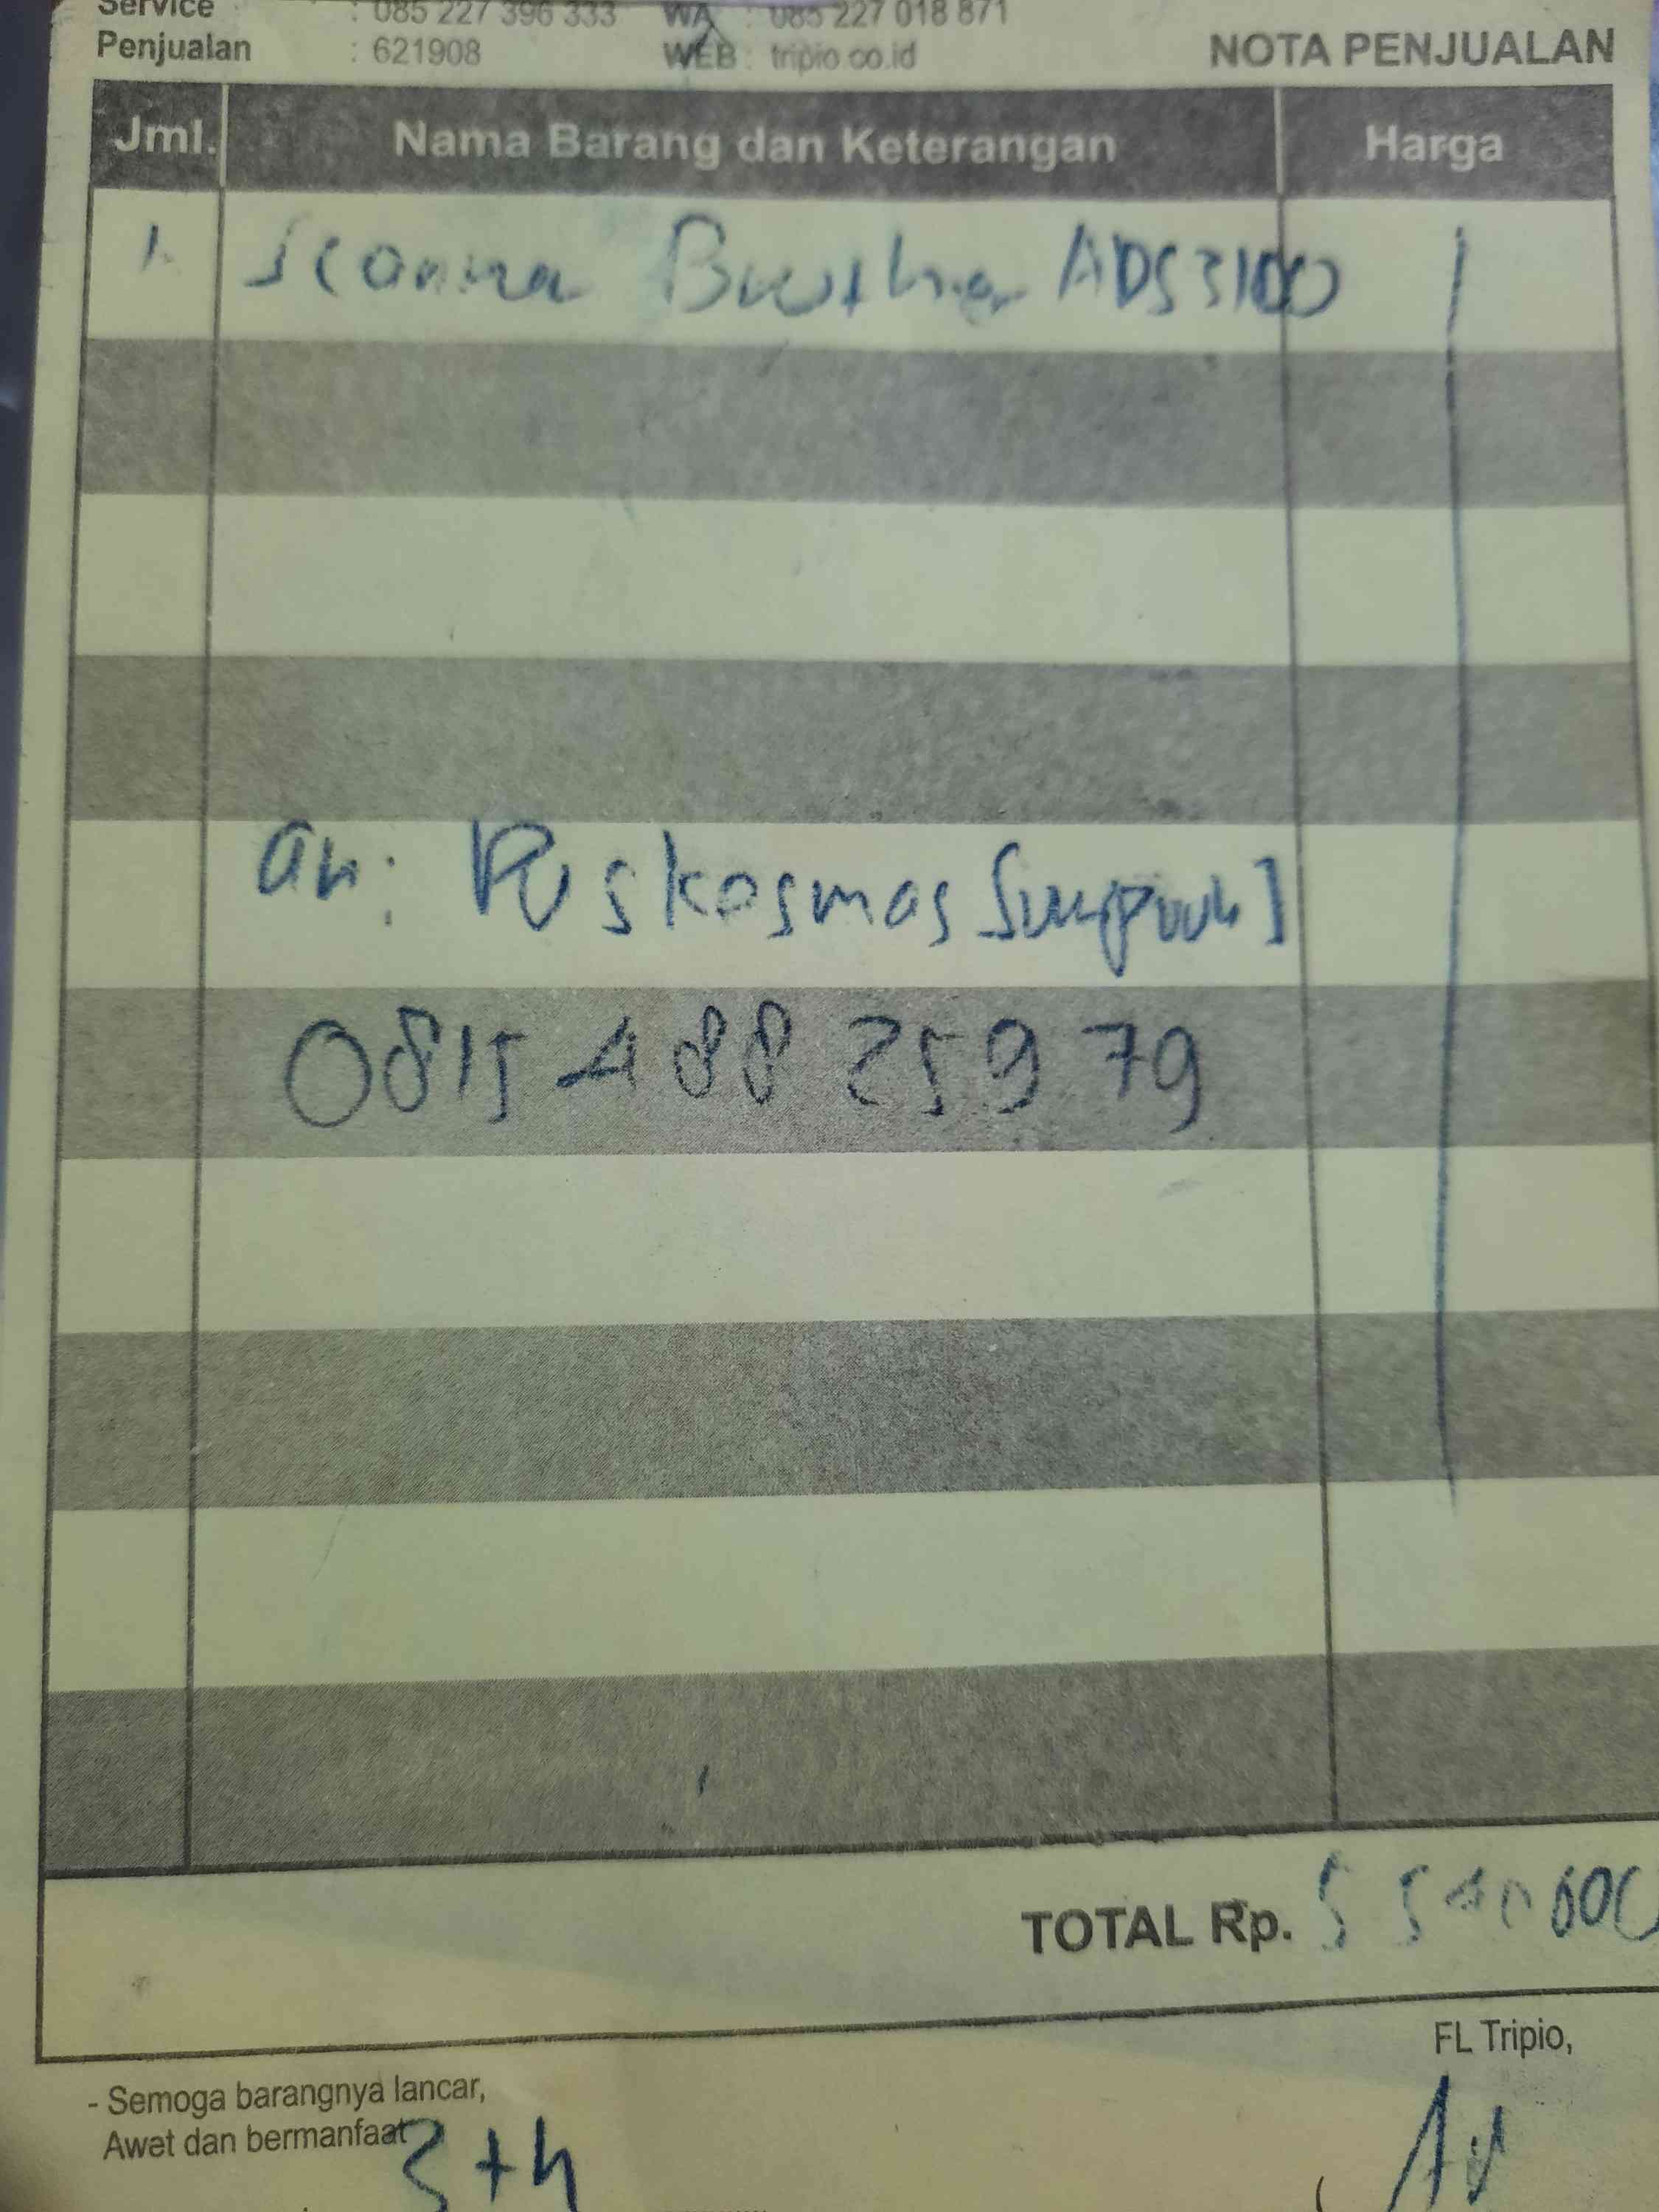 Service : 085 227 396 333 WA : 085 227 018 871
Penjualan : 621908 WEB : tripio.co.id NOTA PENJUALAN
Jml. Nama Barang dan Keterangan Harga
1. Scanner Brother ADS3100
an: Puskesmas Sumpiuh 1
0815 488 25979
TOTAL Rp. 5540000
FL Tripio,
- Semoga barangnya lancar,
Awet dan bermanfaat
3 th